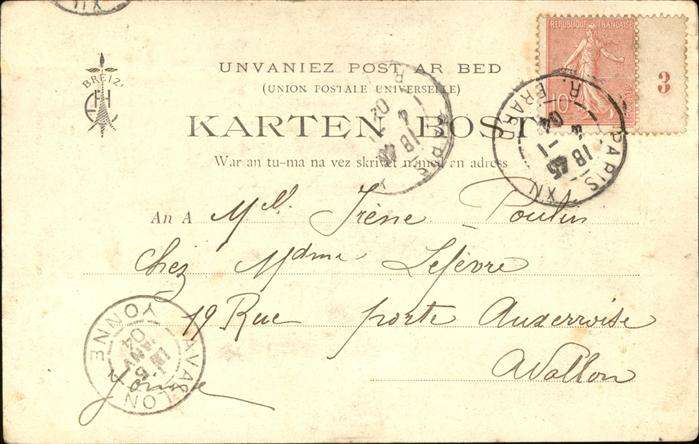 BREIZ
UNVANIEZ POST AR BED
(UNION POSTALE UNIVERSELLE)
KARTEN BOST
War an tu-ma na vez skrivet nemed an adress
RÉPUBLIQUE FRANÇAISE
10
3
PARIS XIV
R.
18 -1
04
An A Mlle Irène Poulin
Chez Mdme Lefèvre
19 Rue porte Auxerroise
Avallon
Yonne
AVALLON
YONNE
JANV
04